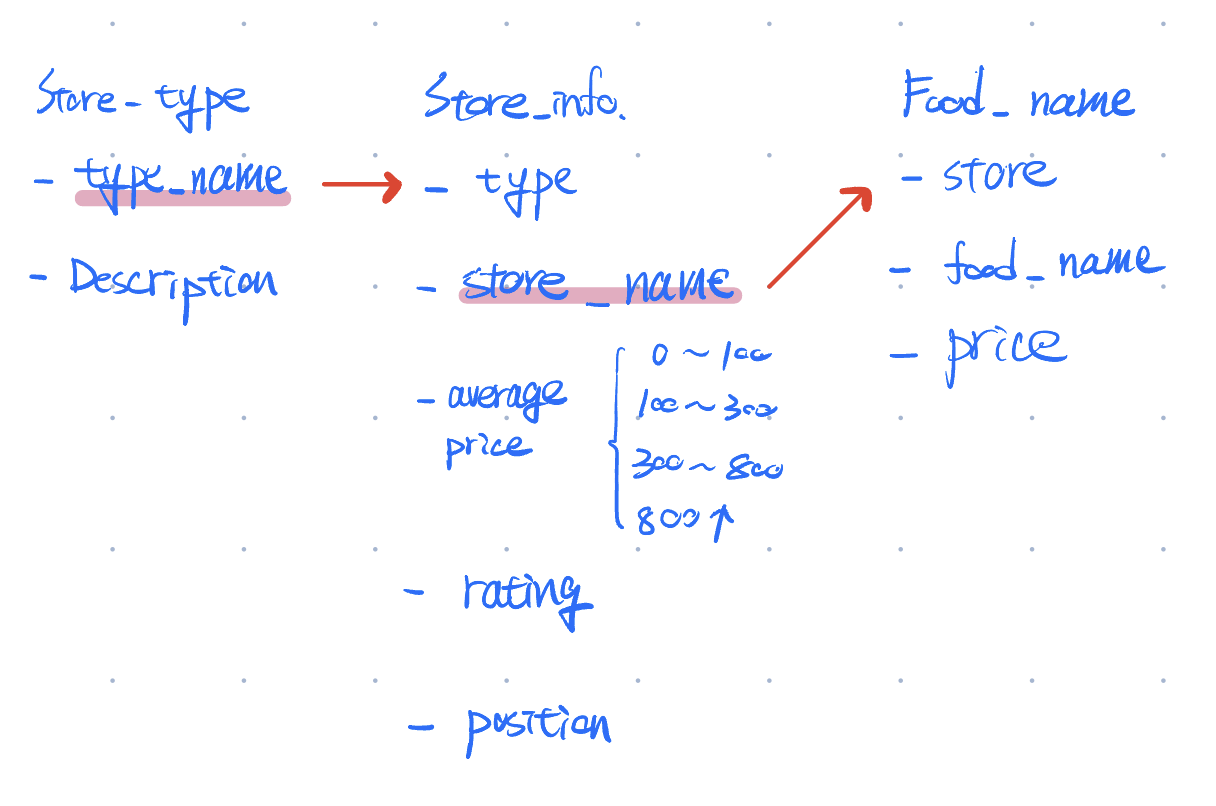 Store-type
- type_name
- Description
Store_info.
- type
- store_name
- average
price
0 ~ 100
100 ~ 300
300 ~ 800
800 ↑
- rating
- position
Food_name
- store
- food_name
- price